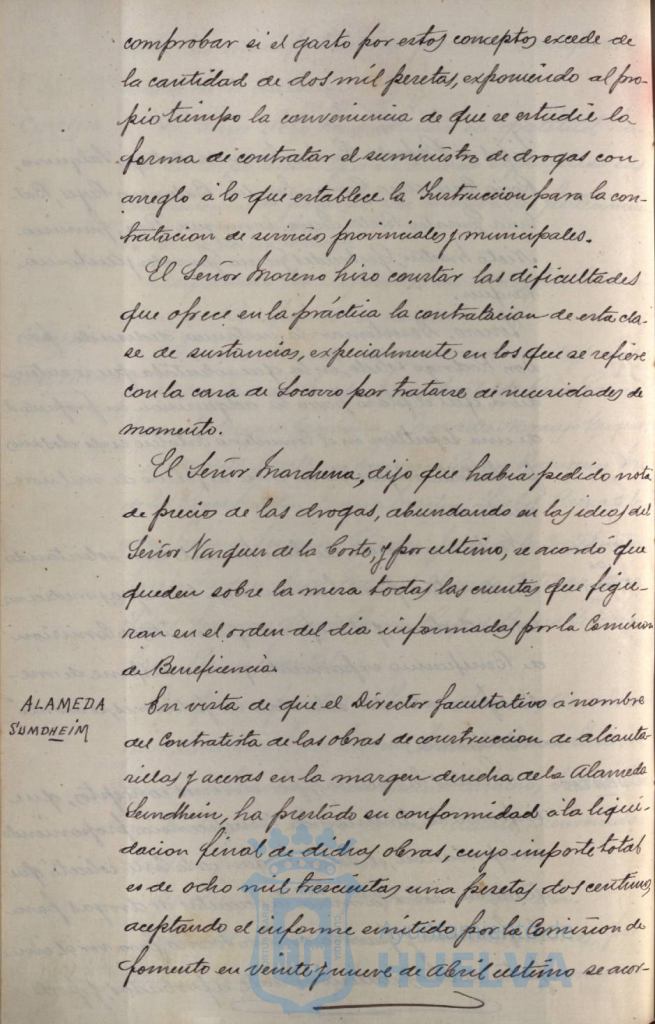 comprobar si el gasto por estos conceptos excede de
la cantidad de dos mil pesetas, exponiendo al pro-
pio tiempo la conveniencia de que se estudie la
forma de contratar el suministro de drogas con
arreglo á lo que establece la Instruccion para la con-
tratacion de servicios provinciales y municipales.
El Señor Moreno hizo constar las dificultades
que ofrece en la práctica la contratacion de esta cla-
se de sustancias, expecialmente en los que se refiere
con la casa de Socorro por tratarse de necesidades de
momento.
El Señor Marchena, dijo que habia pedido nota
de precios de las drogas, abundando en las ideas del
Señor Vazquez de la Corte, y por ultimo, se acordó que
queden sobre la mesa todas las cuentas que figu-
ran en el orden del dia informadas por la Comision
de Beneficencia.
ALAMEDA
SUMDHEIM
En vista de que el Director facultativo á nombre
del Contratista de las obras de construccion de alcanta-
rillas y aceras en la margen derecha de la Alameda
Sundhein, ha prestado su conformidad á la liqui-
dacion final de dichas obras, cuyo importe total
es de ocho mil trescientas una pesetas dos centimos,
aceptando el informe emitido por la Comision de
fomento en veinte y nueve de Abril ultimo se acor-
HUELVA